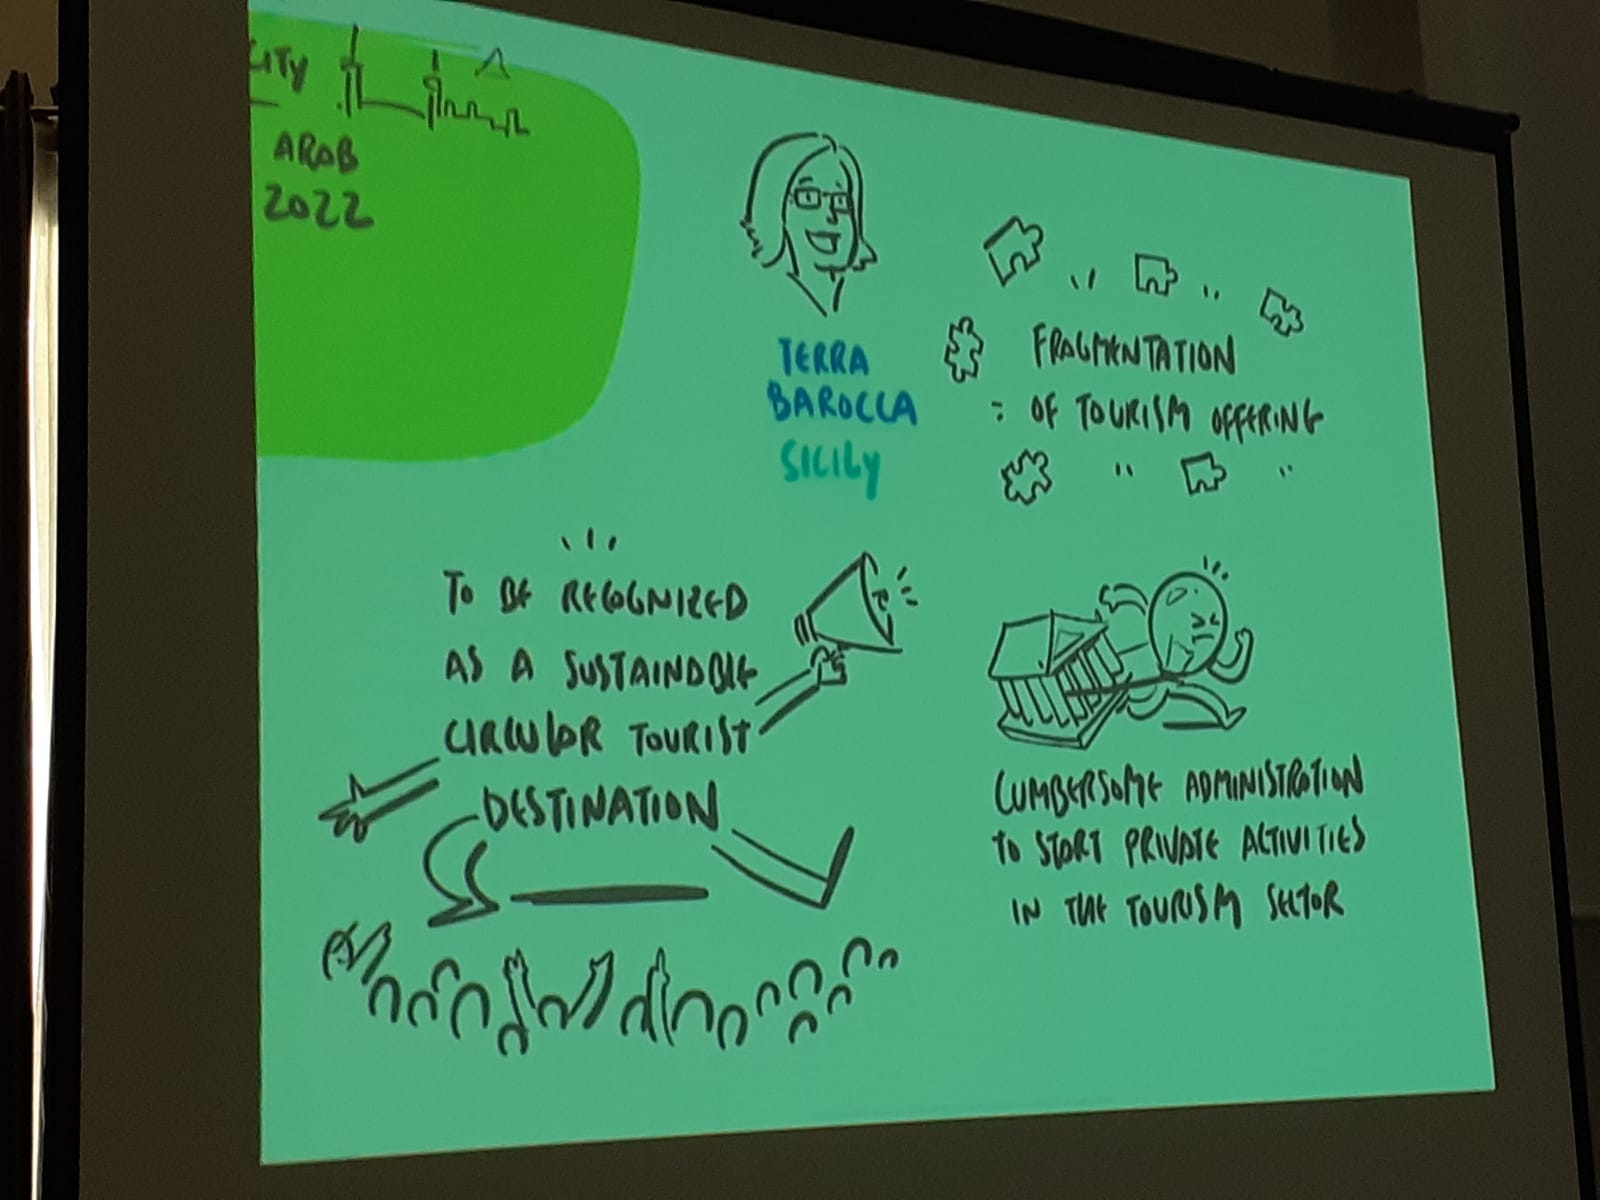 CITY
AROB
2022
TERRA
BAROCCA
SICILY
FRAGMENTATION
OF TOURISM OFFERING
TO BE RECOGNIZED
AS A SUSTAINABLE
CIRCULAR TOURIST
DESTINATION
CUMBERSOME ADMINISTRATION
TO START PRIVATE ACTIVITIES
IN THE TOURISM SECTOR